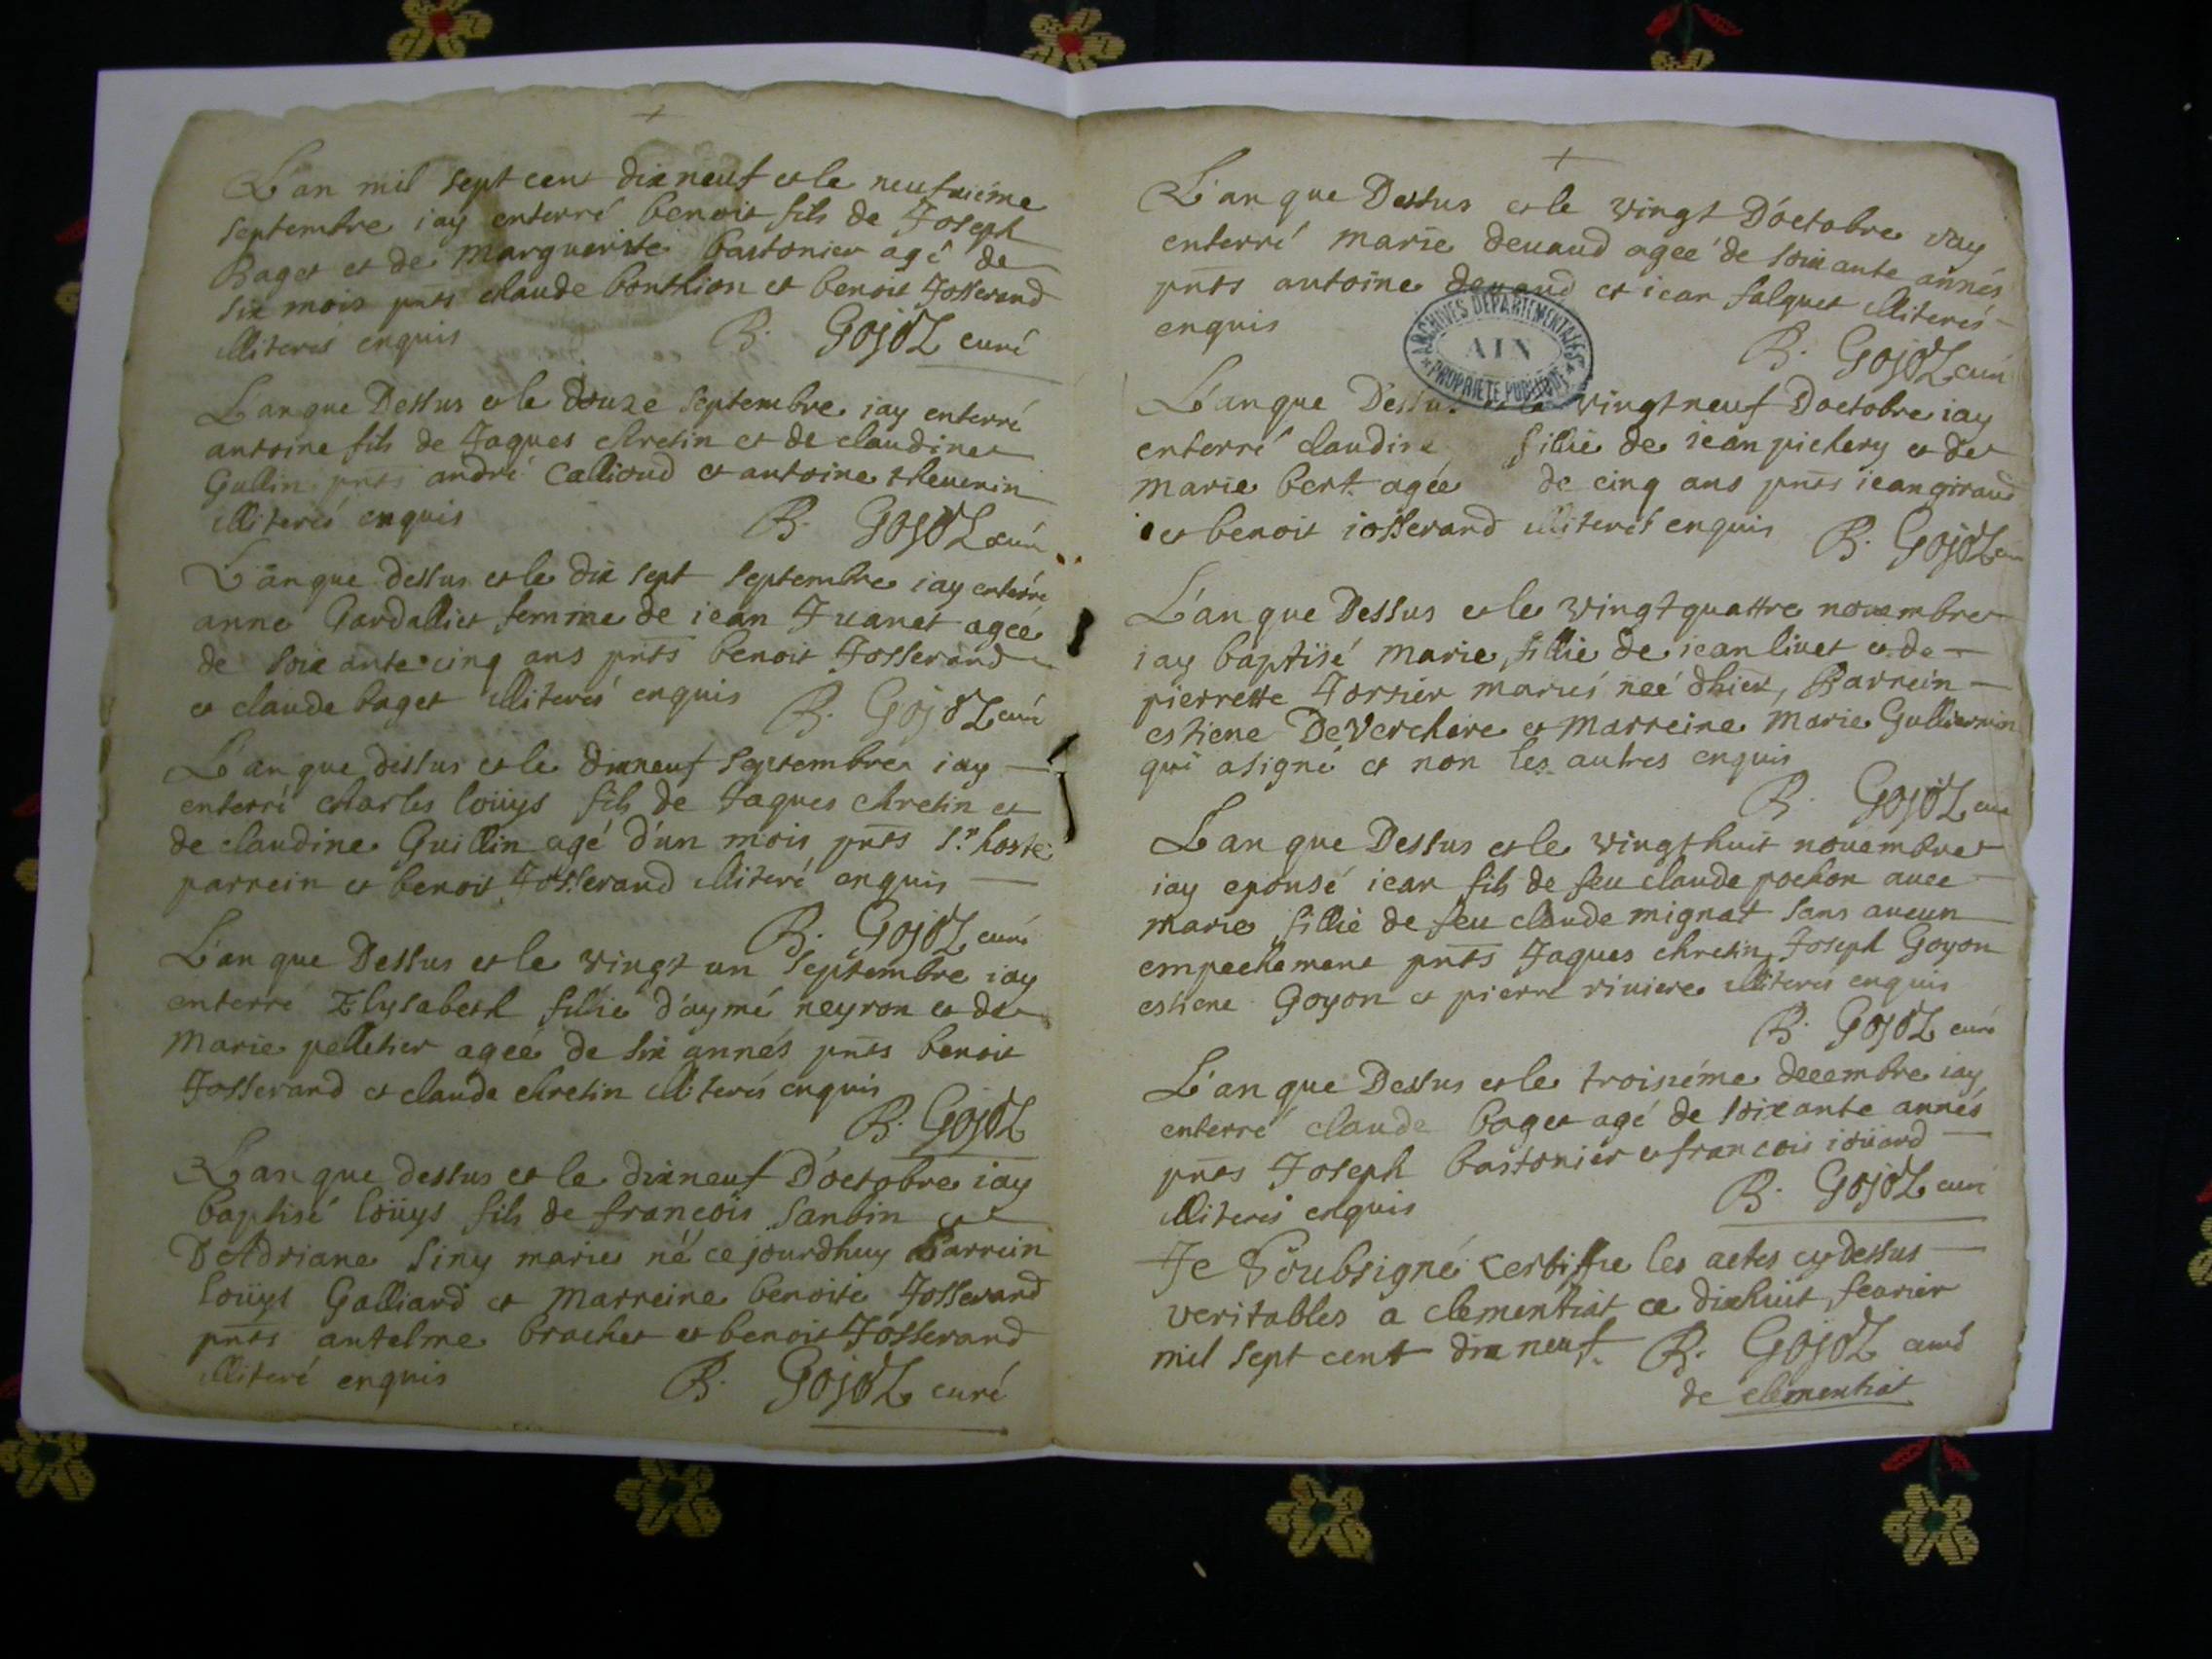 L'an mil sept cent dix neuf et le neufvieme
septembre iay enterré benoit fils de Joseph
Baget et de marguerite bastonier agé de
six mois pnts claude bonthion et benoit Josserand
illiterés enquis
B. GOJOZ curé
L'an que Dessus et le douze septembre iay enterré
antoine fils de Jaques chretin et de claudine
Gullin pnts andré Callioud et antoine thevenin
illiterés enquis
B. GOJOZ curé
L'an que dessus et le dix sept septembre iay enterré
anne Gardalliet femme de iean Juanet ageé
de soixante cinq ans pnts benoit Josserand
et claude baget illiterés enquis
B. GOJOZ curé
L'an que dessus et le dixneuf septembre iay
enterré charles loüys fils de Jaques chretin et
de claudine Guillin agé d'un mois pnts Sr. hoste
parrein et benoit Josserand illiteré enquis
B. GOJOZ curé
L'an que Dessus et le vingt un septembre iay
enterré Elysabeth fillie d'aymé neyron et de
marie pelletier ageé de six annés pnts benoit
Josserand et claude chretin illiterés enquis
B. GOJOZ
L'an que dessus et le dixneuf D'octobre iay
baptisé loüys fils de francois Sanbin et
D'Adriane Siny maries né ce jourdhuy Parrein
loüys Galliard et marreine benoite Josserand
pnts antelme brachet et benoit Josserand
illiteré enquis
B. GOJOZ curé
L'an que Dessus et le vingt D'octobre iay
enterré marie devaud ageé de soixante annés
pnts antoine devaud et iean falquet illiterés
enquis
B. GOJOZ curé
ARCHIVES DEPARTEMENTALES
AIN
PROPRIETE PUBLIQUE
L'an que Dessus et le vingtneuf Doctobre iay
enterré claudine fillie de iean pichery et de
marie bert ageé de cinq ans pnts iean giraud
et benoit iosserand illiterés enquis
B. GOJOZ
L'an que Dessus et le vingtquattre novembre
iay baptisé marie fillie de iean livet et de
pierrette Torsier mariés neé dhier, Parrein
estiene Deverchere et marreine marie Gulliermin
qui asigné et non les autres enquis
B. GOJOZ curé
L'an que Dessus et le vingthuit novembre
iay epousé iean fils de feu claude pochon avec
marie fillie de feu claude mignat sans aucun
empechement pnts Jaques chretin, Joseph Goyon
estiene Goyon et pierre riviere illiterés enquis
B. GOJOZ curé
L'an que Dessus et le troisiéme decembre iay
enterré claude baget agé de soixante annés
pnts Joseph bastonier et francois ioüard
illiterés enquis
B. GOJOZ curé
Je Soubsigné certiffie les actes cy dessus
veritables a clementiat ce dixhuit fevrier
mil sept cent dix neuf. B. GOJOZ curé
de clementiat